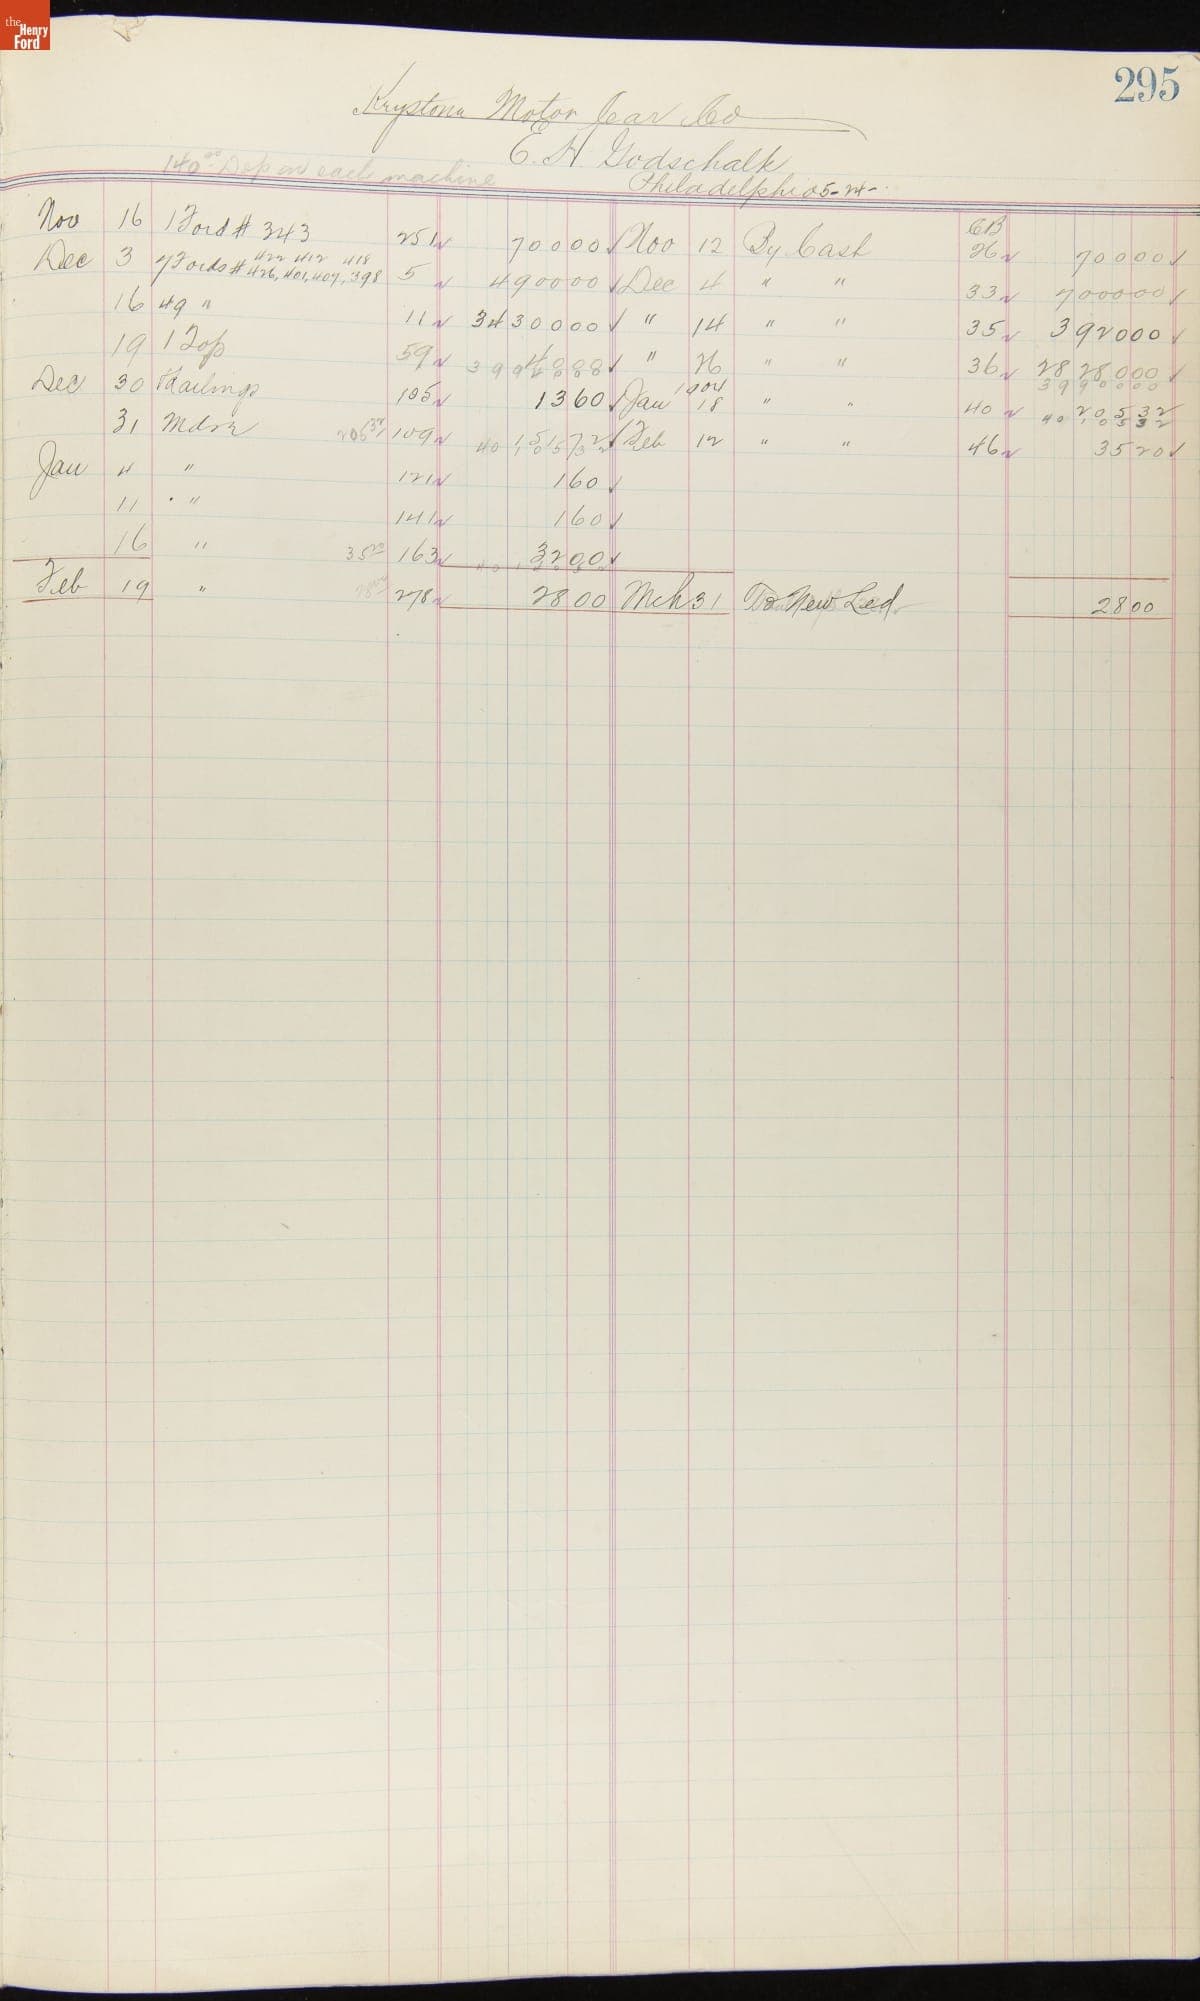 the Henry Ford
295
Krystona Motor Car Co
E. H Godschalk
140⁰⁰ Dep on each machine
Philadelphia 5-24-
CB
Nov 16 1 Ford # 343 251 70000 Nov 12 By Cash 26 70000
422 412 418
Dec 3 7 Fords # 426, 401, 407, 398 5 490000 Dec 4 " " 33 700000
16 49 " 11 3430000 " 14 " " 35 392000
19 1 Top 59 " 26 " " 36 2828000
3990000
1904
Dec 30 Railings 105 1360 Jan 18 " " 40 20532
4010532
31 Mdse 205³² 109 Feb 12 " " 46 3520
Jan 4 " 121 160
11 " 141 160
16 " 35²⁰ 163 3200
Feb 19 " 28⁰⁰ 278 2800 Mch 31 To New Led 2800